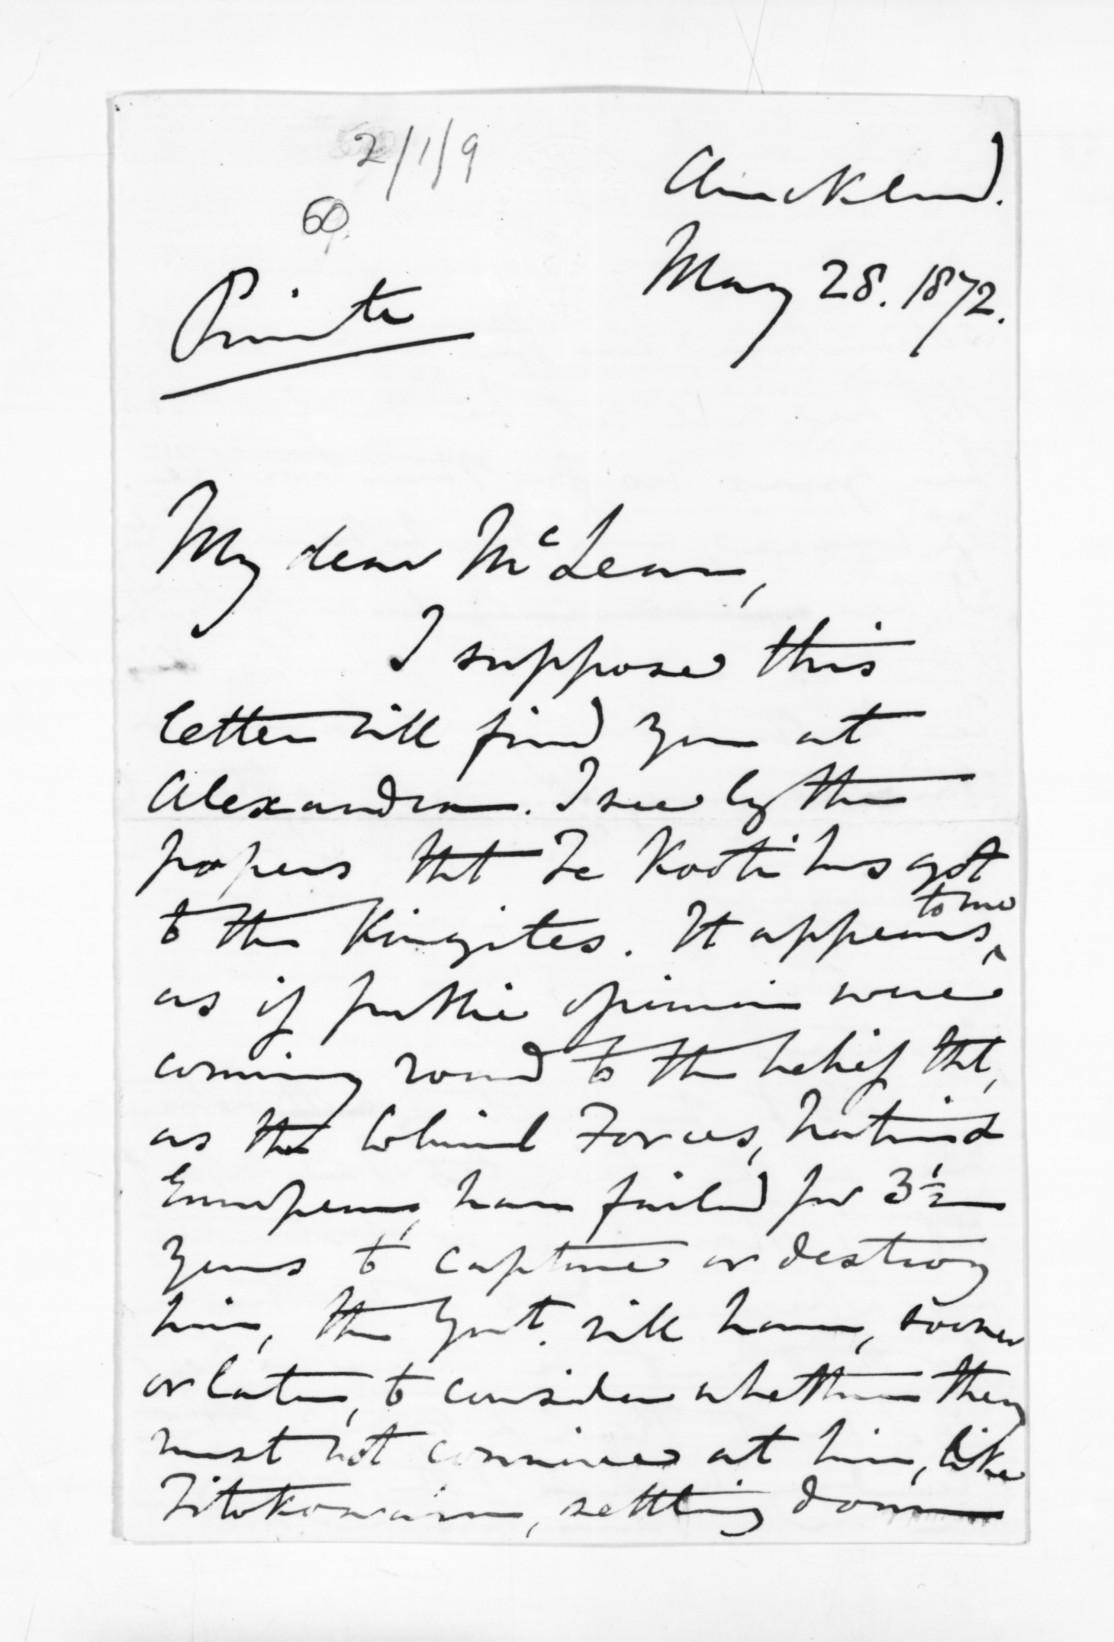 2/1/9
69.
Auckland.
May 28. 1872.
Private
My dear McLean,
I suppose this
letter will find you at
Alexandra. I see by the
papers that Te Kooti has got
to the Kingites. It appears, to me
as if public opinion were
coming round to the belief that,
as the Colonial Forces, native &
European, have failed for 3½
years to capture or destroy
him, the Govt. will have, sooner
or later, to consider whether they
must not connive at him, like
Titokowaru, settling down